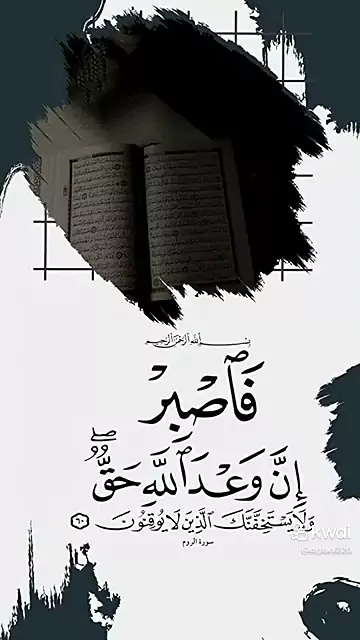 بِسْمِ اللَّهِ الرَّحْمَٰنِ الرَّحِيمِ
فَٱصْبِرْ
إِنَّ وَعْدَ ٱللَّهِ حَقٌّ ۖ
وَلَا يَسْتَخِفَّنَّكَ ٱلَّذِينَ لَا يُوقِنُونَ ﴿٦٠﴾
سورة الروم
Kwai